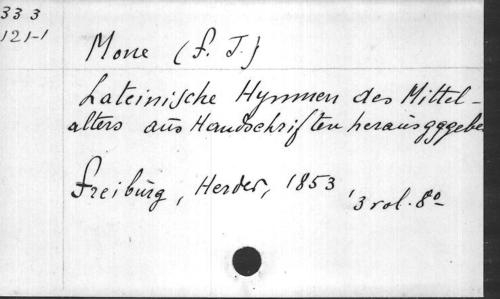 33 3
121-1
Mone (F. J.)
Lateinische Hymnen des Mittel-
alters aus Handschriften herausgggebe
Freiburg, Herder, 1853, 3 vol. 8º